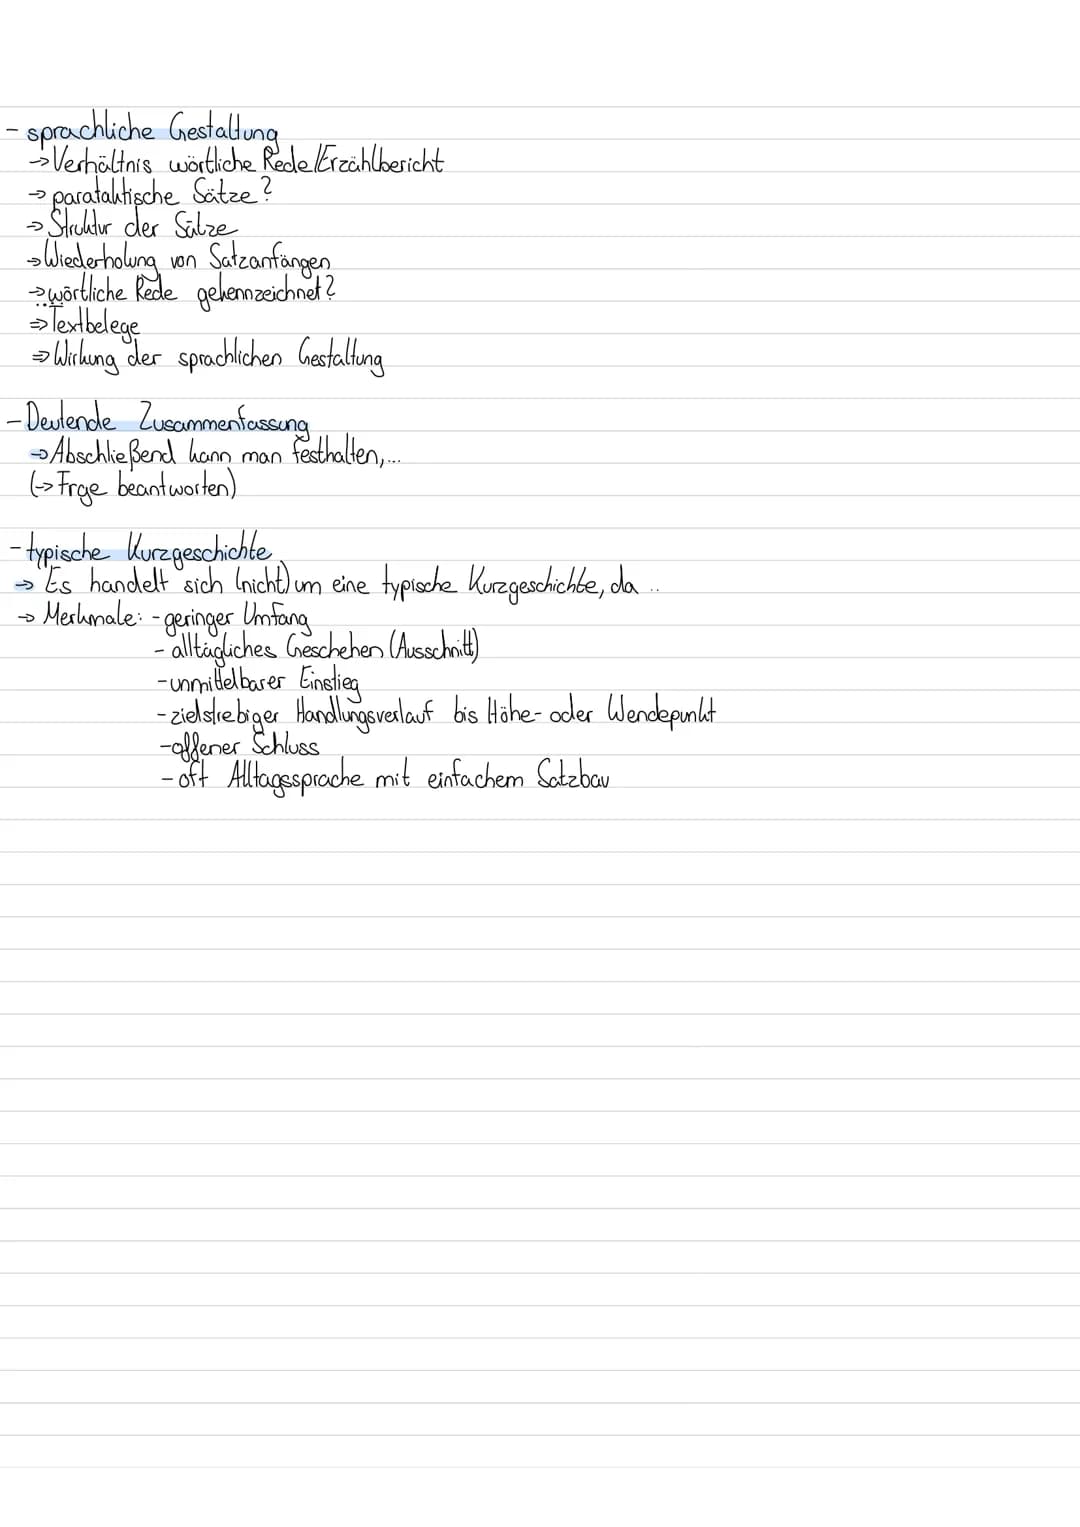 - sprachliche Gestaltung
→ Verhältnis wörtliche Rede/Erzählbericht
→ parataktische Sätze?
→ Struktur der Sätze
→ Wiederholung von Satzanfängen
→ wörtliche Rede gekennzeichnet?
⇒ Textbelege
⇒ Wirkung der sprachlichen Gestaltung
- Deutende Zusammenfassung
→ Abschließend kann man festhalten,...
(→ Frge beantworten)
- typische Kurzgeschichte
→ Es handelt sich (nicht) um eine typische Kurzgeschichte, da ..
→ Merkmale: - geringer Umfang
- alltägliches Geschehen (Ausschnitt)
- unmittelbarer Einstieg
- zielstrebiger Handlungsverlauf bis Höhe- oder Wendepunkt
- offener Schluss
- oft Alltagssprache mit einfachem Satzbau